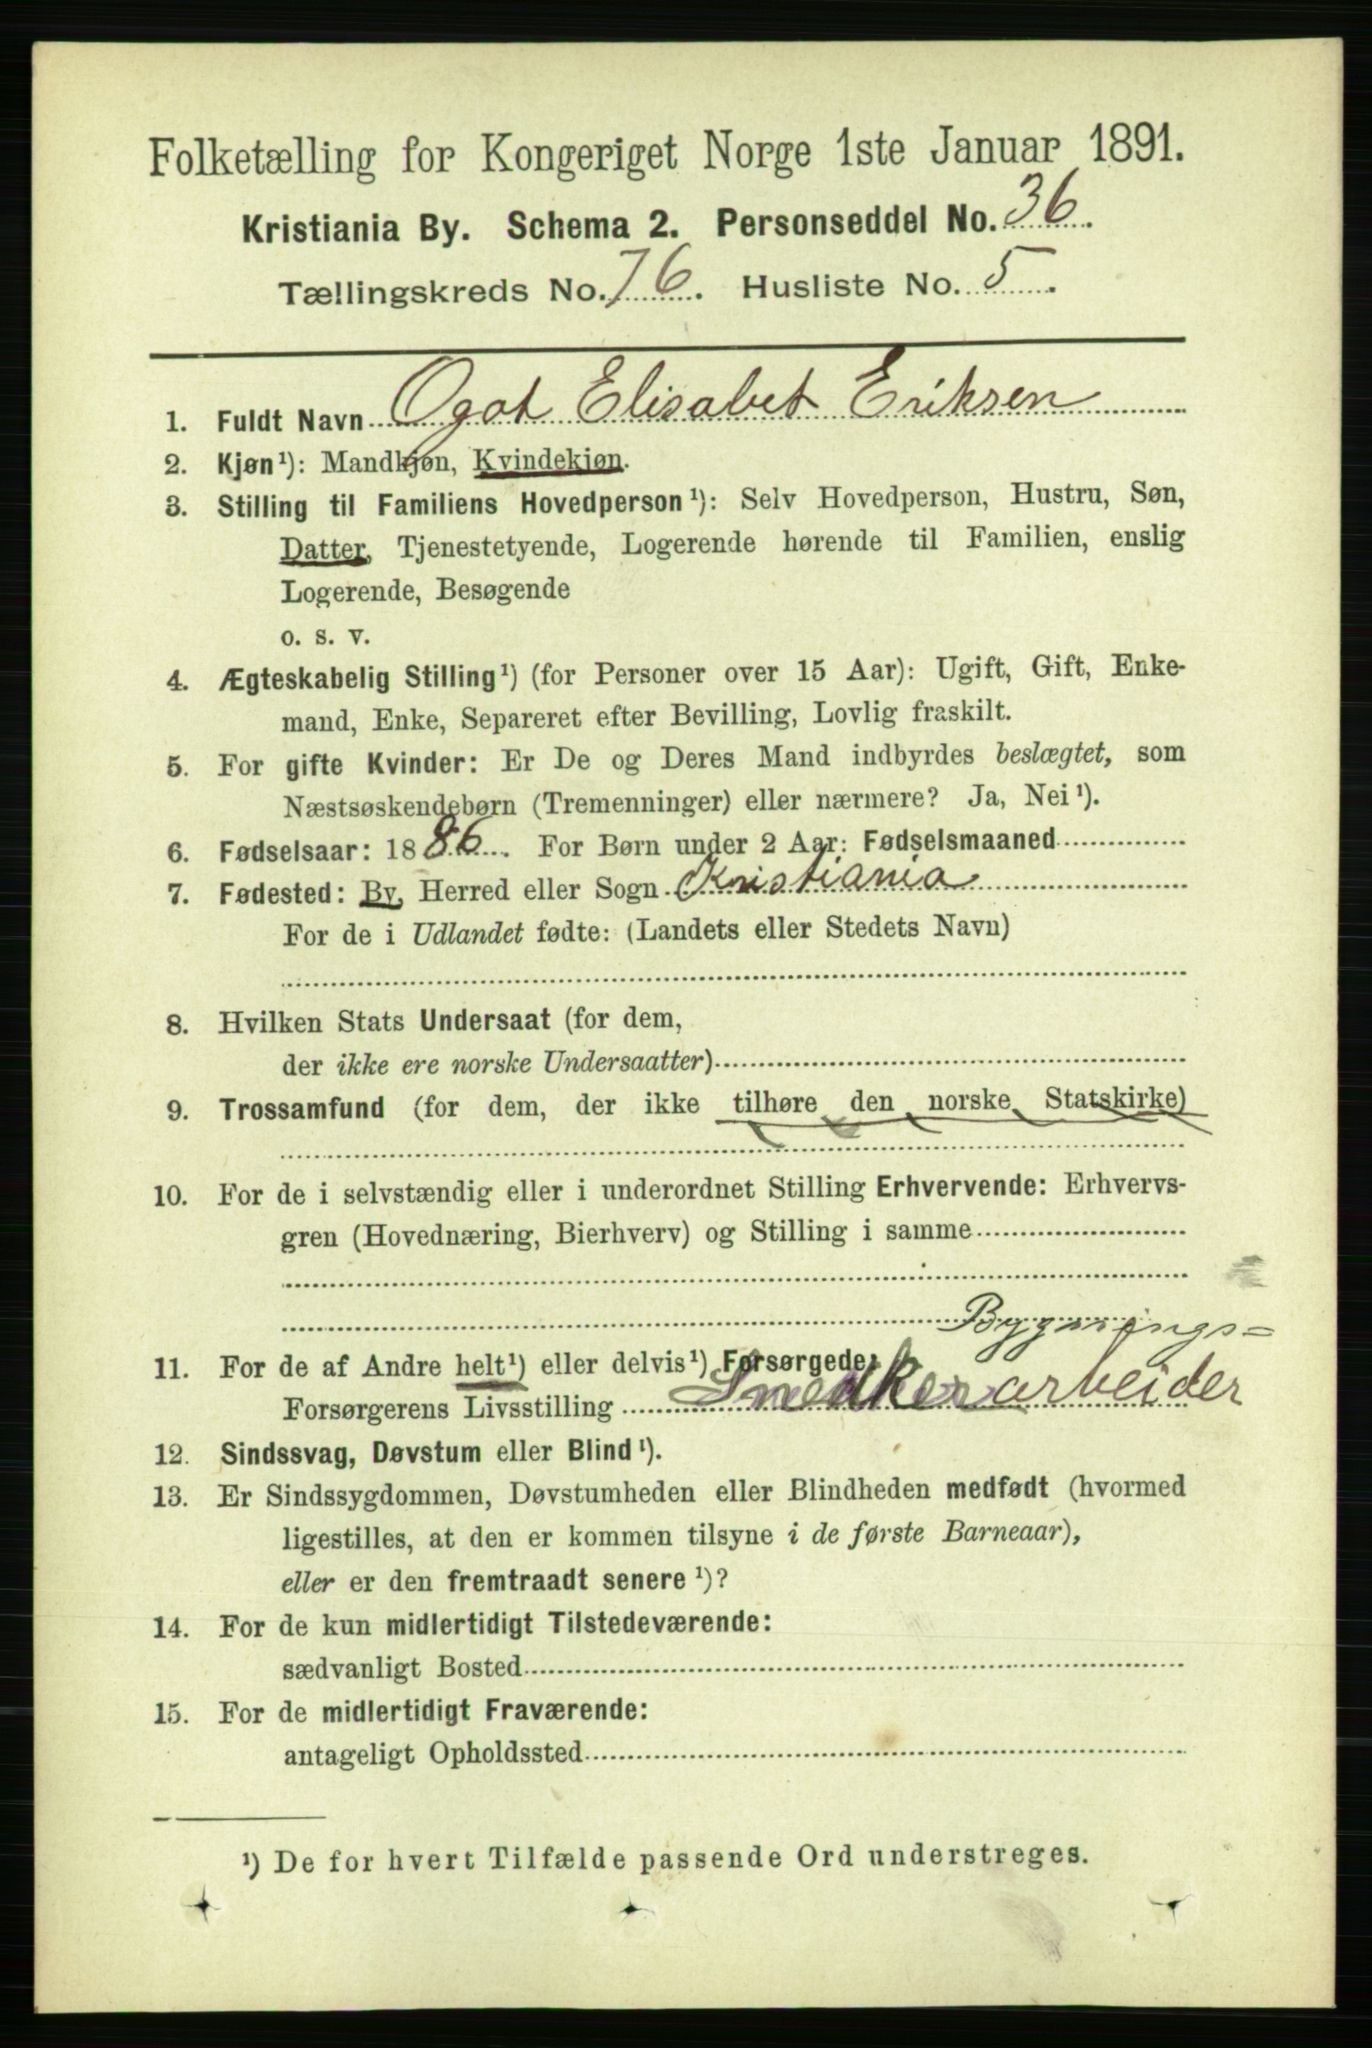 Folketælling for Kongeriget Norge 1ste Januar 1891.
Kristiania By. Schema 2. Personseddel No. 36.
Tællingskreds No. 76. Husliste No. 5.
1. Fuldt Navn Ogot Elisabet Eriksen
2. Kjøn¹): Mandkjøn, Kvindekjøn.
3. Stilling til Familiens Hovedperson¹): Selv Hovedperson, Hustru, Søn,
Datter, Tjenestetyende, Logerende hørende til Familien, enslig
Logerende, Besøgende
o. s. v.
4. Ægteskabelig Stilling¹) (for Personer over 15 Aar): Ugift, Gift, Enke-
mand, Enke, Separeret efter Bevilling, Lovlig fraskilt.
5. For gifte Kvinder: Er De og Deres Mand indbyrdes beslægtet, som
Næstsøskendebørn (Tremenninger) eller nærmere? Ja, Nei¹).
6. Fødselsaar: 1886. For Børn under 2 Aar: Fødselsmaaned
7. Fødested: By, Herred eller Sogn Kristiania
For de i Udlandet fødte: (Landets eller Stedets Navn)
8. Hvilken Stats Undersaat (for dem,
der ikke ere norske Undersaatter)
9. Trossamfund (for dem, der ikke tilhøre den norske Statskirke)
10. For de i selvstændig eller i underordnet Stilling Erhvervende: Erhvervs-
gren (Hovednæring, Bierhverv) og Stilling i samme
Bygnings=
11. For de af Andre helt¹) eller delvis¹) Forsørgede:
Forsørgerens Livsstilling Snedkerarbeider
12. Sindssvag, Døvstum eller Blind¹).
13. Er Sindssygdommen, Døvstumheden eller Blindheden medfødt (hvormed
ligestilles, at den er kommen tilsyne i de første Barneaar),
eller er den fremtraadt senere¹)?
14. For de kun midlertidigt Tilstedeværende:
sædvanligt Bosted
15. For de midlertidigt Fraværende:
antageligt Opholdssted
¹) De for hvert Tilfælde passende Ord understreges.